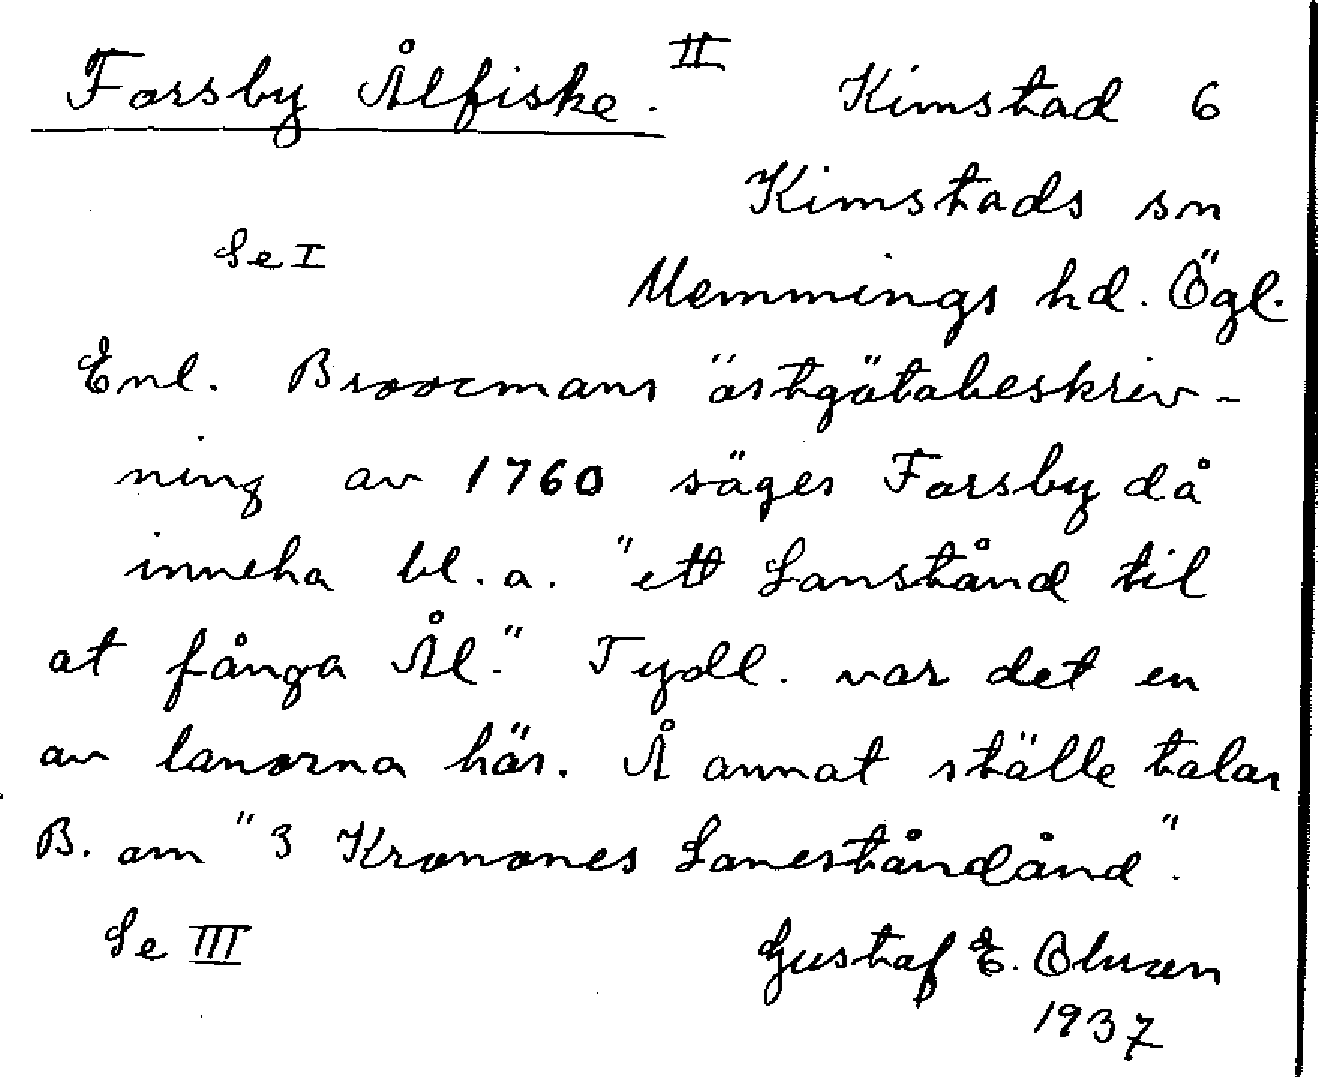 Forsby Ålfiske. II Kimstad 6
Kimstads sn
Se I
Memmings hd. Ögl.
Enl. Broocmans östgötabeskriv-
ning av 1760 säges Forsby då
inneha bl. a. "ett Lanstånd til
at fånga Ål." Tydl. var det en
av lanorna här. Å annat ställe talar
B. om "3 Kronones Laneståndånd".
Se III
Gustaf E. Olusen
1937